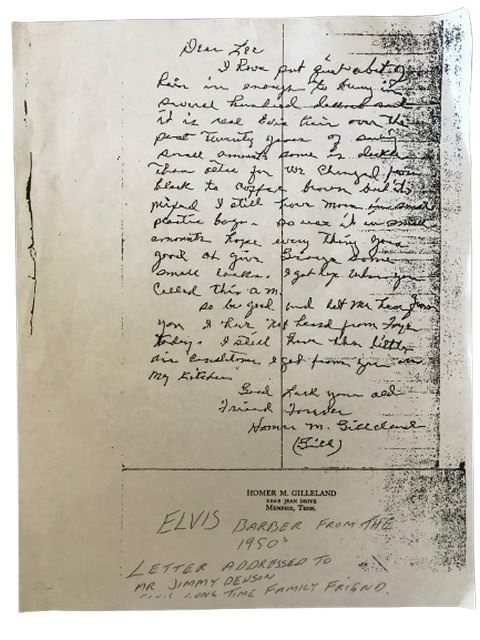 Dear Lee
I have put quit abit of
hair in enough to bring in
several hundred dollars and
it is real Elvis hair over the
past twenty years of saving
small amounts some is darker
than other for we changed from
black to coffee brown but its
mixed I still have more in small
plastic bags. so wax it in small
amounts hope every thing goes
good at give George some
small locks. I got up when you
called this a.m.
so be good and let me hear from
you I have not heard from
today. I still have the little
air conditioner I got from you in
my kitchen
Good luck your old
Friend Forever
Homer M. Gilleland
(Gill)
HOMER M. GILLELAND
JEAN DRIVE
MEMPHIS, TENN.
ELVIS BARBER FROM THE
1950s
LETTER ADDRESSED TO
MR JIMMY DENSON
ELVIS LONG TIME FAMILY FRIEND.